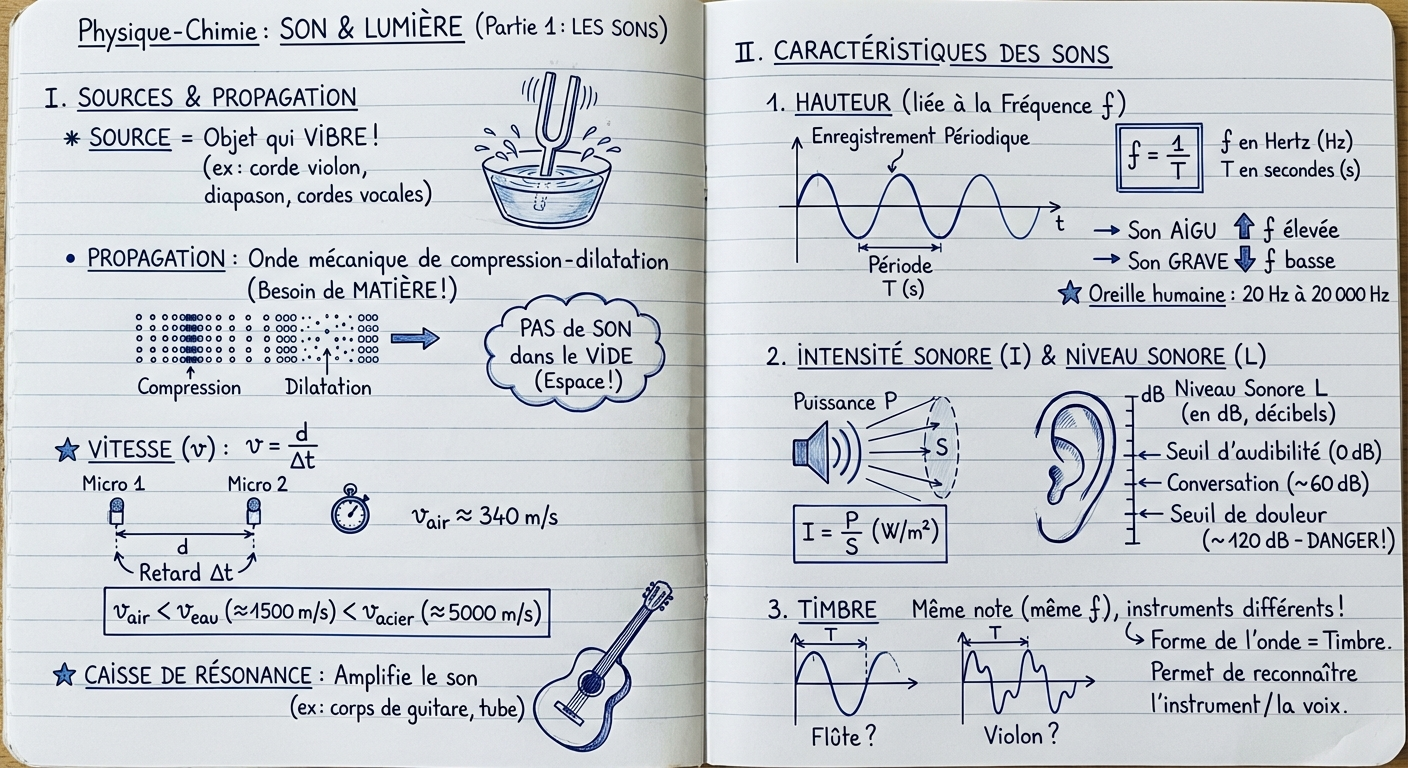 Physique-Chimie : SON & LUMIÈRE (Partie 1 : LES SONS)
I. SOURCES & PROPAGATION
* SOURCE = Objet qui VIBRE !
(ex : corde violon,
diapason, cordes vocales)
• PROPAGATION : Onde mécanique de compression-dilatation
(Besoin de MATIÈRE !)
PAS de SON
dans le VIDE
(Espace !)
Compression
Dilatation
★ VITESSE (v) : v = d/Δt
Micro 1
Micro 2
d
Retard Δt
v_air ≈ 340 m/s
v_air < v_eau (≈1500 m/s) < v_acier (≈5000 m/s)
★ CAISSE DE RÉSONANCE : Amplifie le son
(ex : corps de guitare, tube)
II. CARACTÉRISTIQUES DES SONS
1. HAUTEUR (liée à la Fréquence f)
Enregistrement Périodique
t
Période
T (s)
f = 1/T
f en Hertz (Hz)
T en secondes (s)
→ Son AIGU ⬆ f élevée
→ Son GRAVE ⬇ f basse
★ Oreille humaine : 20 Hz à 20 000 Hz
2. INTENSITÉ SONORE (I) & NIVEAU SONORE (L)
Puissance P
S
I = P/S (W/m²)
dB Niveau Sonore L
(en dB, décibels)
← Seuil d'audibilité (0 dB)
← Conversation (~60 dB)
← Seuil de douleur
(~120 dB - DANGER !)
3. TIMBRE Même note (même f), instruments différents !
↳ Forme de l'onde = Timbre.
Permet de reconnaître
l'instrument / la voix.
T
Flûte ?
T
Violon ?